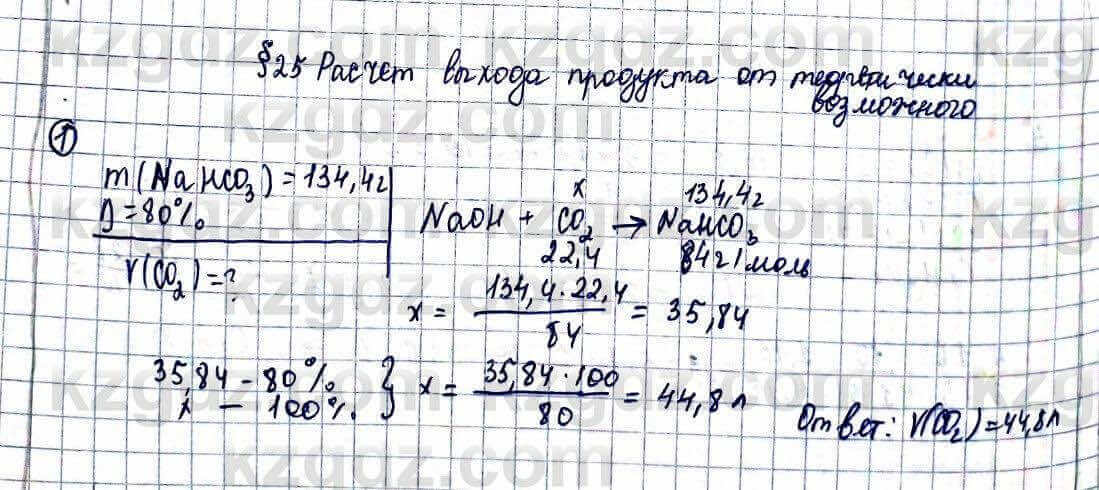 §25 Расчет выхода продукта от теоретически
возможного
①
m(NaHCO₃)=134,4г
η=80%
V(CO₂)=?
x 134,4г
NaOH + CO₂ → NaHCO₃
22,4 84г/моль
x = 134,4·22,4 / 84 = 35,84
35,84 – 80%
x – 100%. } x = 35,84·100 / 80 = 44,8л
Ответ: V(CO₂)=44,8л
kzgdz.com